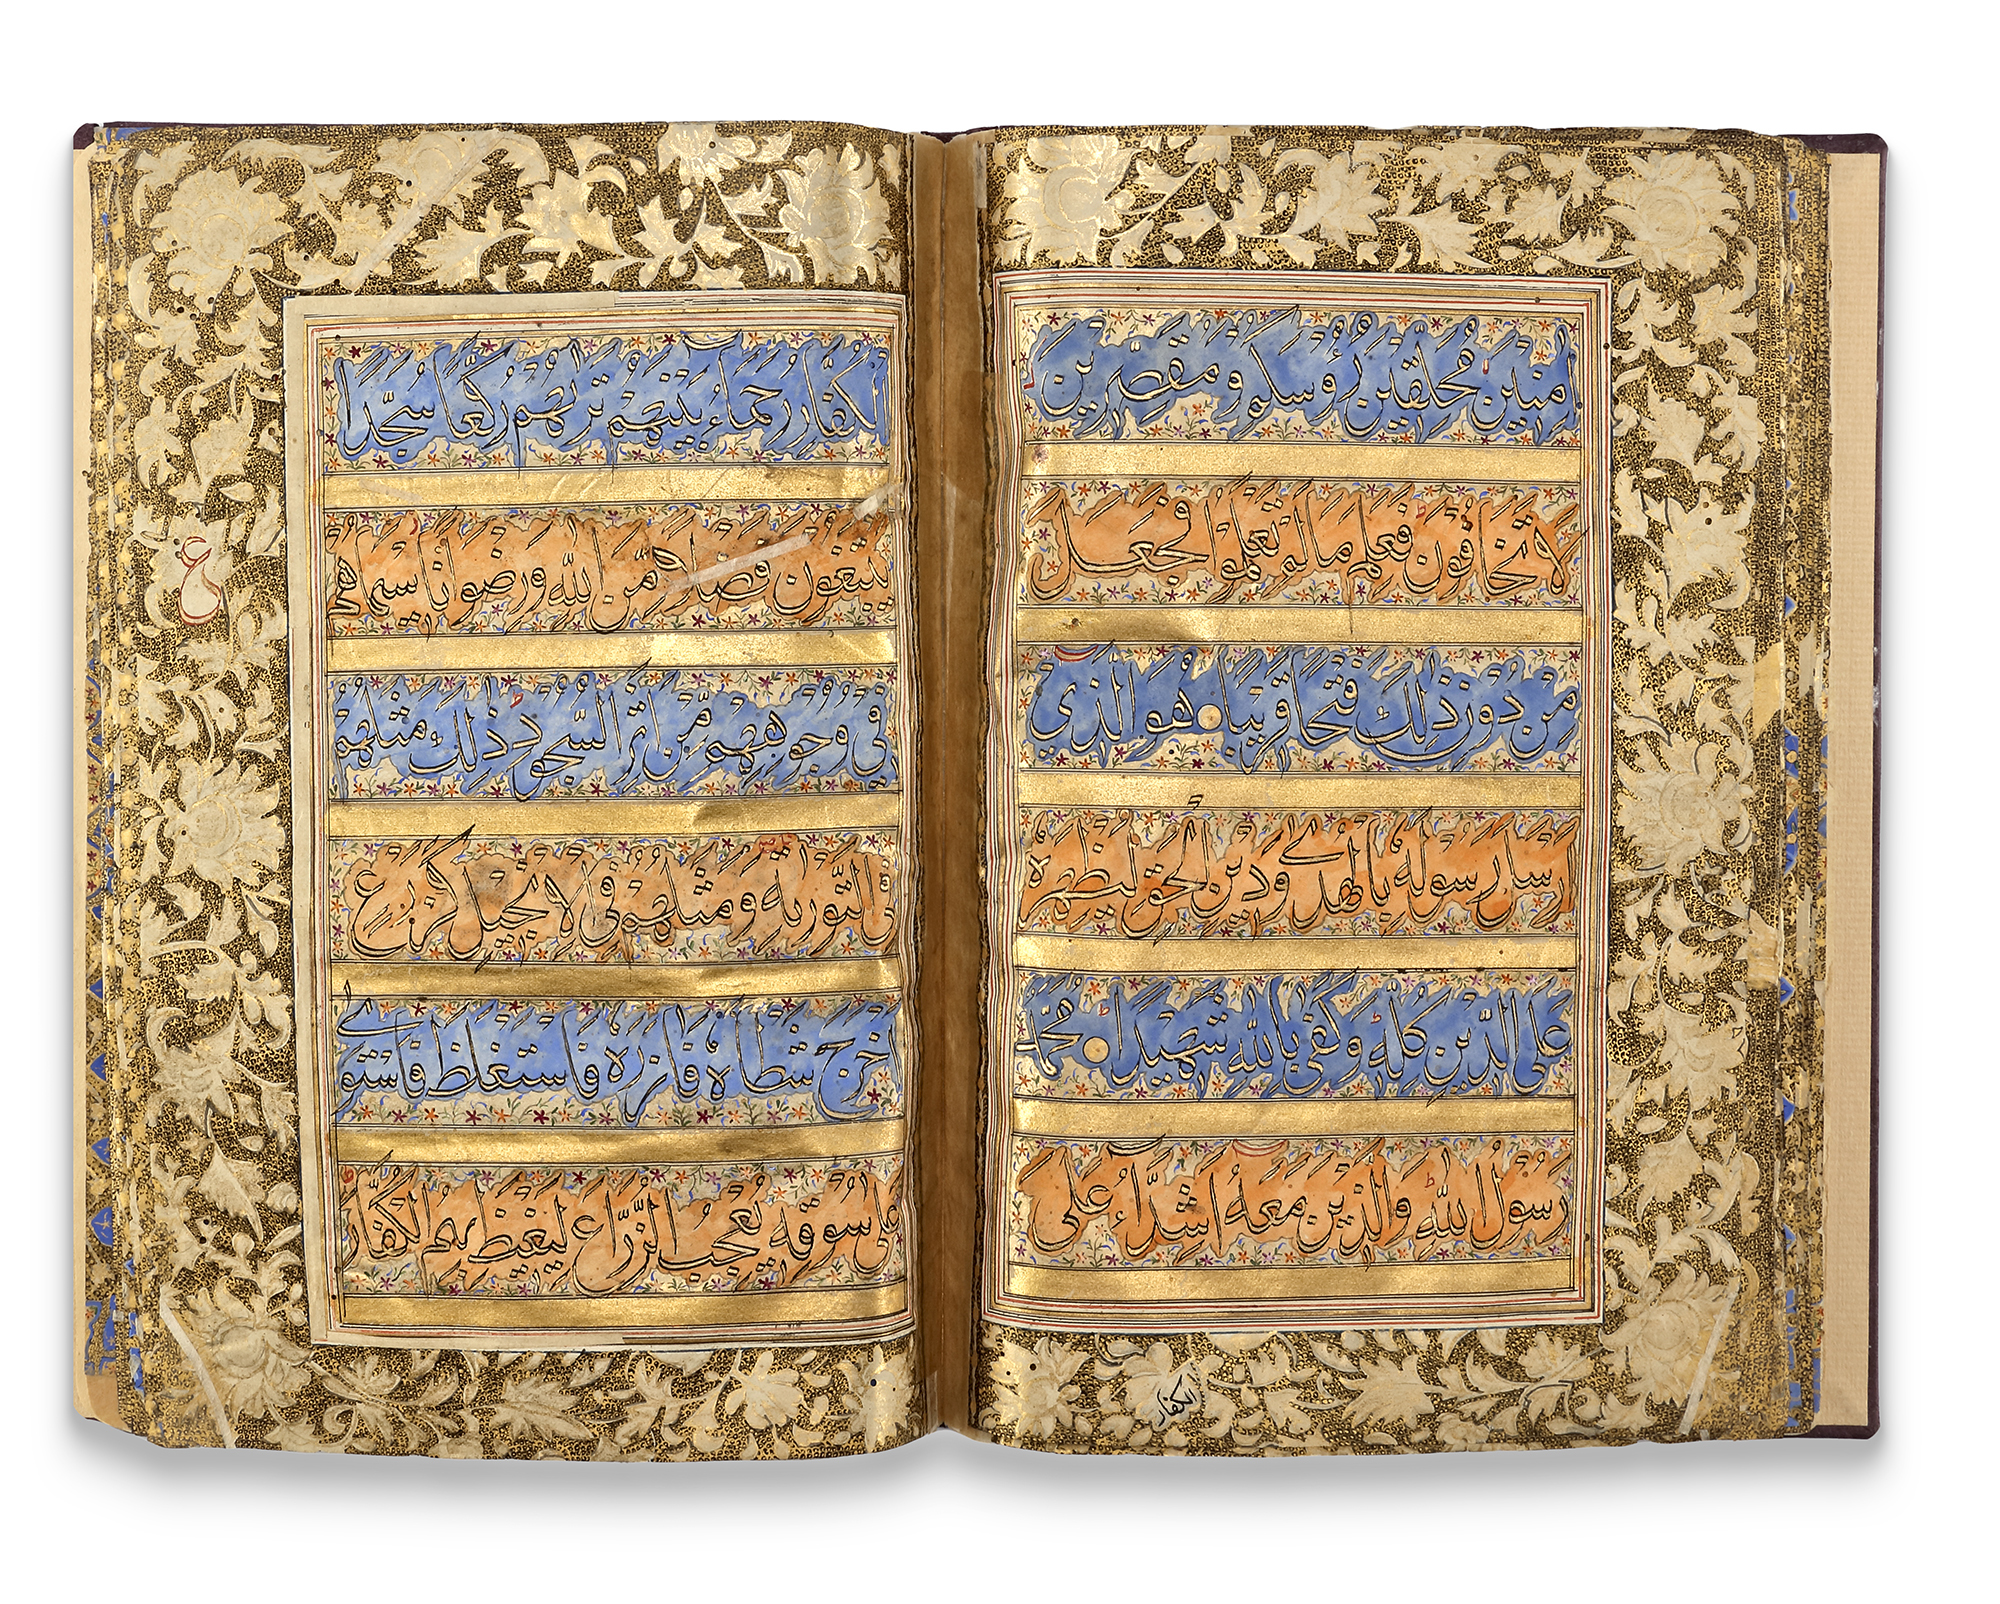 اٰمِنِيْنَ مُحَلِّقِيْنَ رُؤُسَكُمْ وَمُقَصِّرِيْنَ
لَا تَخَافُوْنَ فَعَلِمَ مَا لَمْ تَعْلَمُوْا فَجَعَلَ
مِنْ دُوْنِ ذٰلِكَ فَتْحًا قَرِيْبًا هُوَ الَّذِيْ
اَرْسَلَ رَسُوْلَهٗ بِالْهُدٰى وَدِيْنِ الْحَقِّ لِيُظْهِرَهٗ
عَلَى الدِّيْنِ كُلِّهٖ وَكَفٰى بِاللّٰهِ شَهِيْدًا مُحَمَّدٌ
رَسُوْلُ اللّٰهِ وَالَّذِيْنَ مَعَهٗ اَشِدَّاءُ عَلَى
الكفار
الْكُفَّارِ رُحَمَاءُ بَيْنَهُمْ تَرٰىهُمْ رُكَّعًا سُجَّدًا
يَبْتَغُوْنَ فَضْلًا مِّنَ اللّٰهِ وَرِضْوَانًا سِيْمَاهُمْ
فِيْ وُجُوْهِهِمْ مِّنْ اَثَرِ السُّجُوْدِ ذٰلِكَ مَثَلُهُمْ
فِي التَّوْرٰىةِ وَمَثَلُهُمْ فِي الْاِنْجِيْلِ كَزَرْعٍ
اَخْرَجَ شَطْاَهٗ فَاٰزَرَهٗ فَاسْتَغْلَظَ فَاسْتَوٰى
عَلٰى سُوْقِهٖ يُعْجِبُ الزُّرَّاعَ لِيَغِيْظَ بِهِمُ الْكُفَّارَ
ع